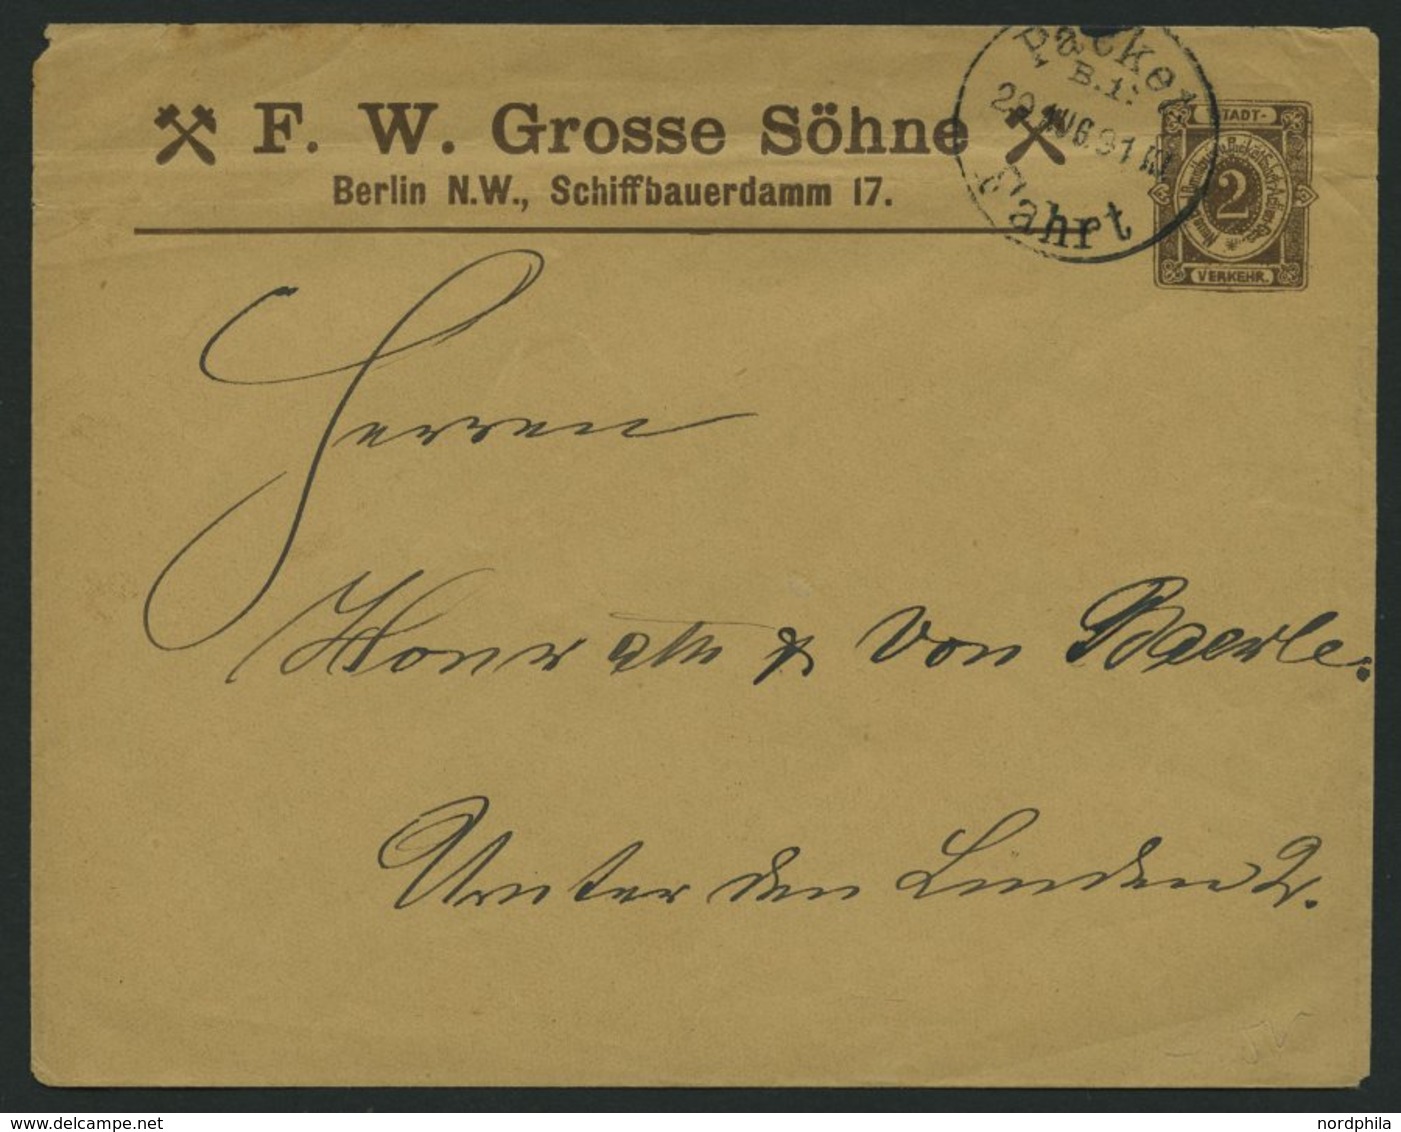 F. W. Grosse Söhne
Berlin N.W., Schiffbauerdamm 17.
Packet
B.1.
29 AUG.91
Fahrt
STADT-
2
VERKEHR.
Herren
Honrath & von Baerle.
Unter den Linden 2.
nordphila